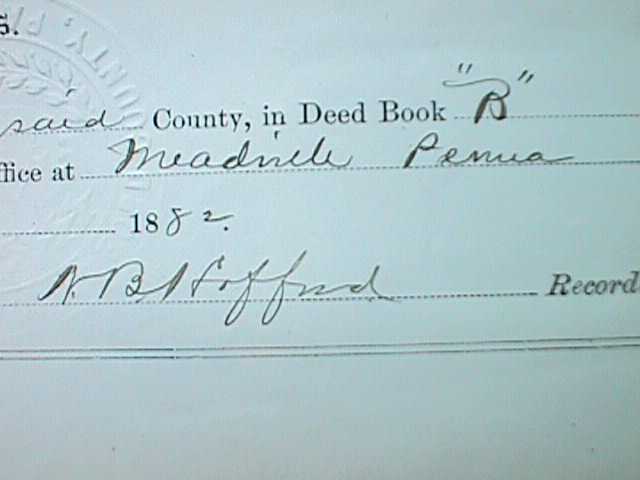 S.
said County, in Deed Book "B"
ffice at Meadville Penna
1882.
Record